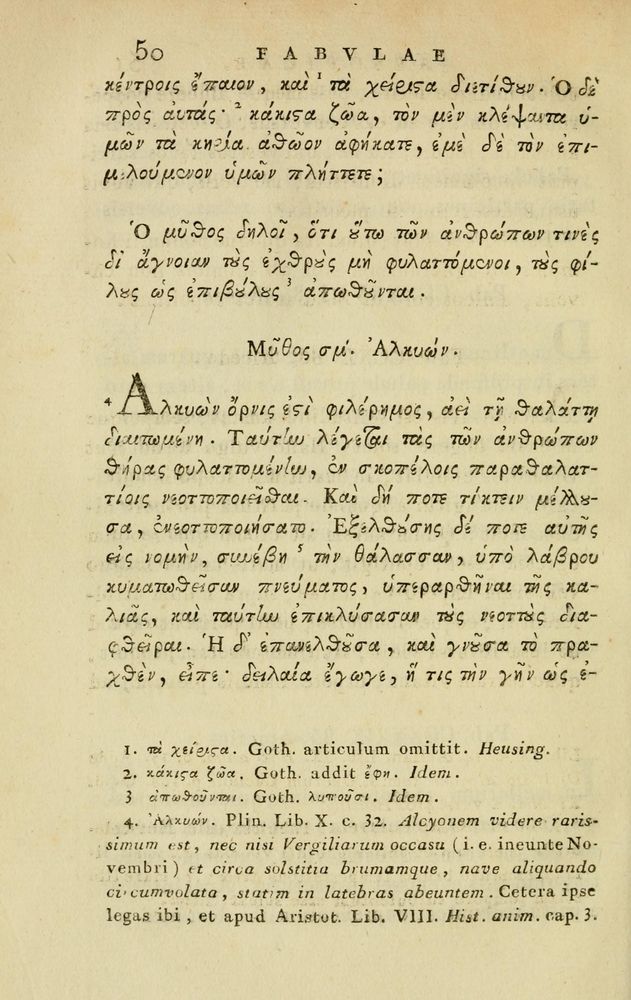 50 FABVLAE
κέντροις ἔπαιον, καὶ ¹ τὰ χείριςα διετίθουν. Ὁ δὲ
πρὸς αὐτάς· ² κάκιςα ζῶα, τὸν μὲν κλέψαντα ὑ-
μῶν τὰ κηρία ἀθῶον ἀφήκατε, ἐμὲ δὲ τὸν ἐπι-
μελούμενον ὑμῶν πλήττετε;
Ὁ μῦθος δηλοῖ, ὅτι οὕτω τῶν ἀνθρώπων τινὲς
δι' ἄγνοιαν τοὺς ἐχθροὺς μὴ φυλαττόμενοι, τοὺς φί-
λους ὡς ἐπιβούλους ³ ἀπωθοῦνται.
Μῦθος σμ'. Ἀλκυών.
⁴ Ἀλκυὼν ὄρνις ἐςὶ φιλέρημος, ἀεὶ τῇ θαλάττῃ
διαιτωμένη. Ταύτην λέγεται τὰς τῶν ἀνθρώπων
θήρας φυλαττομένην, ἐν σκοπέλοις παραθαλατ-
τίοις νεοττοποιεῖσθαι. Καὶ δή ποτε τίκτειν μέλλου-
σα, ἐνεοττοποιήσατο. Ἐξελθούσης δέ ποτε αὐτῆς
εἰς νομὴν, συνέβη ⁵ τὴν θάλασσαν, ὑπὸ λάβρου
κυματωθεῖσαν πνεύματος, ὑπεραρθῆναι τῆς κα-
λιᾶς, καὶ ταύτην ἐπικλύσασαν τοὺς νεοττοὺς δια-
φθεῖραι. Ἡ δ' ἐπανελθοῦσα, καὶ γνοῦσα τὸ πρα-
χθὲν, εἶπε· δειλαία ἔγωγε, ἥ τις τὴν γῆν ὡς ἐ-
1. τὰ χείριςα. Goth. articulum omittit. Heusing.
2. κάκιςα ζῶα. Goth. addit ἔφη. Idem.
3 ἀπωθοῦνται. Goth. λυποῦσι. Idem.
4. Ἀλκυών. Plin. Lib. X. c. 32. Alcyonem videre raris-
simum est, nec nisi Vergiliarum occasu (i. e. ineunte No-
vembri) et circa solstitia brumamque, nave aliquando
circumvolata, statim in latebras abeuntem. Cetera ipse
legas ibi, et apud Aristot. Lib. VIII. Hist. anim. cap. 3.